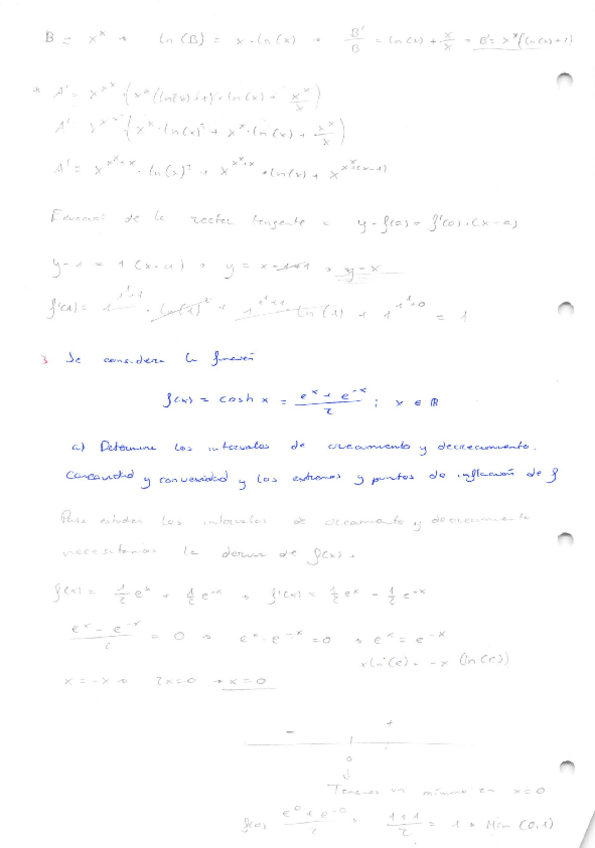 B = x^x → ln(B) = x·ln(x) → B'/B = ln(x) + x/x = B' = x^x(ln(x)+1)
A' = x^x^x (x^x(ln(x)+1)·ln(x) + x^x/x)
A' = x^x^x (x^x·ln(x)² + x^x·ln(x) + x^x/x)
A' = x^x^x+x · ln(x)² + x^x^x+x · ln(x) + x^x^x+(x-1)
de la recta tangente = y - f(a) = f'(a)·(x-a)
y - 1 = 1(x-1) → y = x-1+1 → y = x
f'(1) = 1^1^1+1 · ln(1)² + 1^1^1+1 ln(1) + 1^1^1+0 = 1
3 Se considera la función
f(x) = cosh x = (e^x + e^-x)/2 ; x ∈ ℝ
a) Determine los intervalos de crecimiento y decrecimiento.
Concavidad y convexidad y los extremos y puntos de inflexión de f
Para estudiar los intervalos de crecimiento y decrecimiento
necesitamos la deriv de f(x).
f(x) = 1/2 e^x + 1/2 e^-x → f'(x) = 1/2 e^x - 1/2 e^-x
(e^x - e^-x)/2 = 0 → e^x - e^-x = 0 → e^x = e^-x
x ln(e) = -x (ln(e))
x = -x → 2x = 0 → x = 0
- +
0
Tenemos un mínimo en x=0
f(0) (e^0 + e^-0)/2 = (1+1)/2 = 1 → Min (0,1)